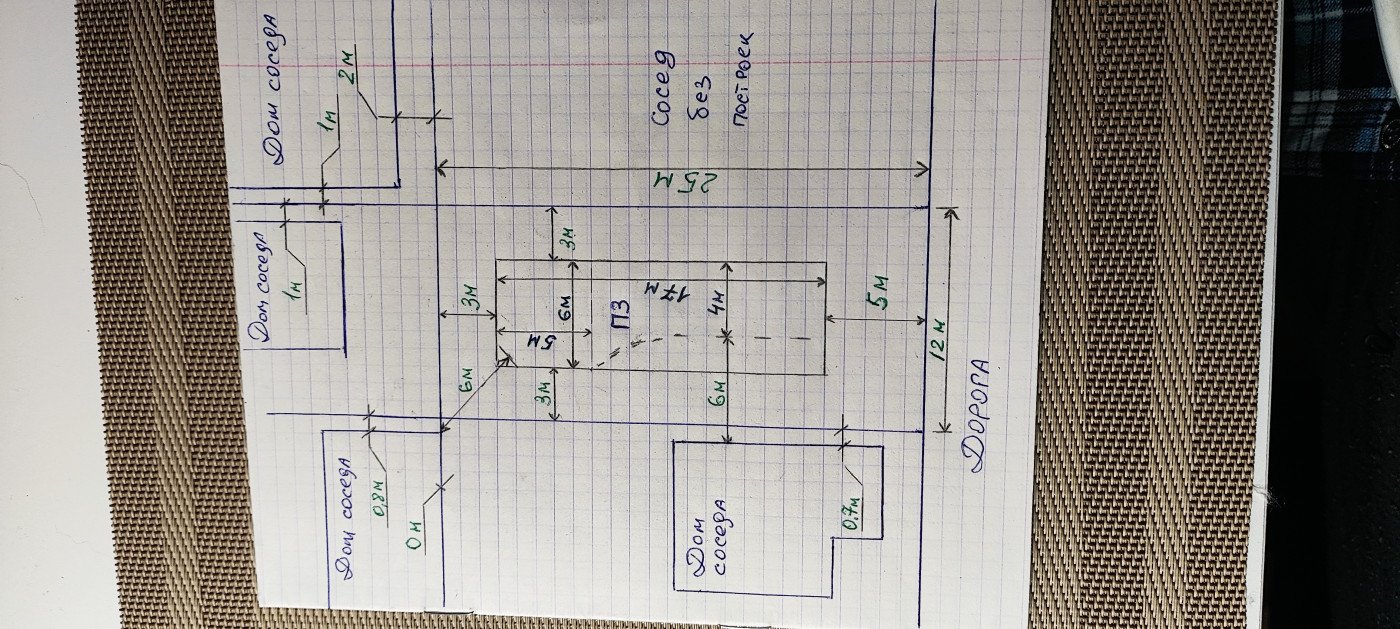 Дом соседа
1м
2м
Дом соседа
1м
Дом соседа
0,8м
0м
Сосед
без
построек
25м
3м
3м
6м
5м
6м
3м
ПЗ
17м
4м
6м
5м
12м
Дом
соседа
0,7м
ДОРОРА